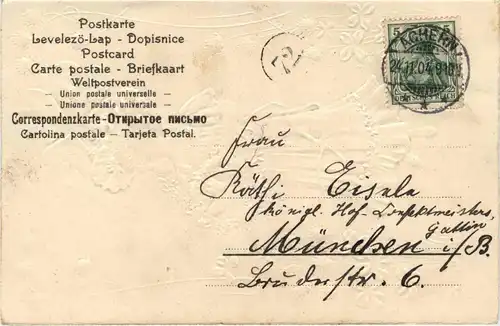 Postkarte
Levelezö-Lap - Dopisnice
Postcard
Carte postale - Briefkaart
Weltpostverein
- Union postale universelle -
- Unione postale universale -
Correspondenzkarte - Открытое письмо
Cartolina postale — Tarjeta Postal.
72
5 5
ACHERN
24.11.04.9-10
Frau
Käthi Eisele
königl. Hof-Confektmeisters,
Gattin
München i/B.
Bruderstr. 6.